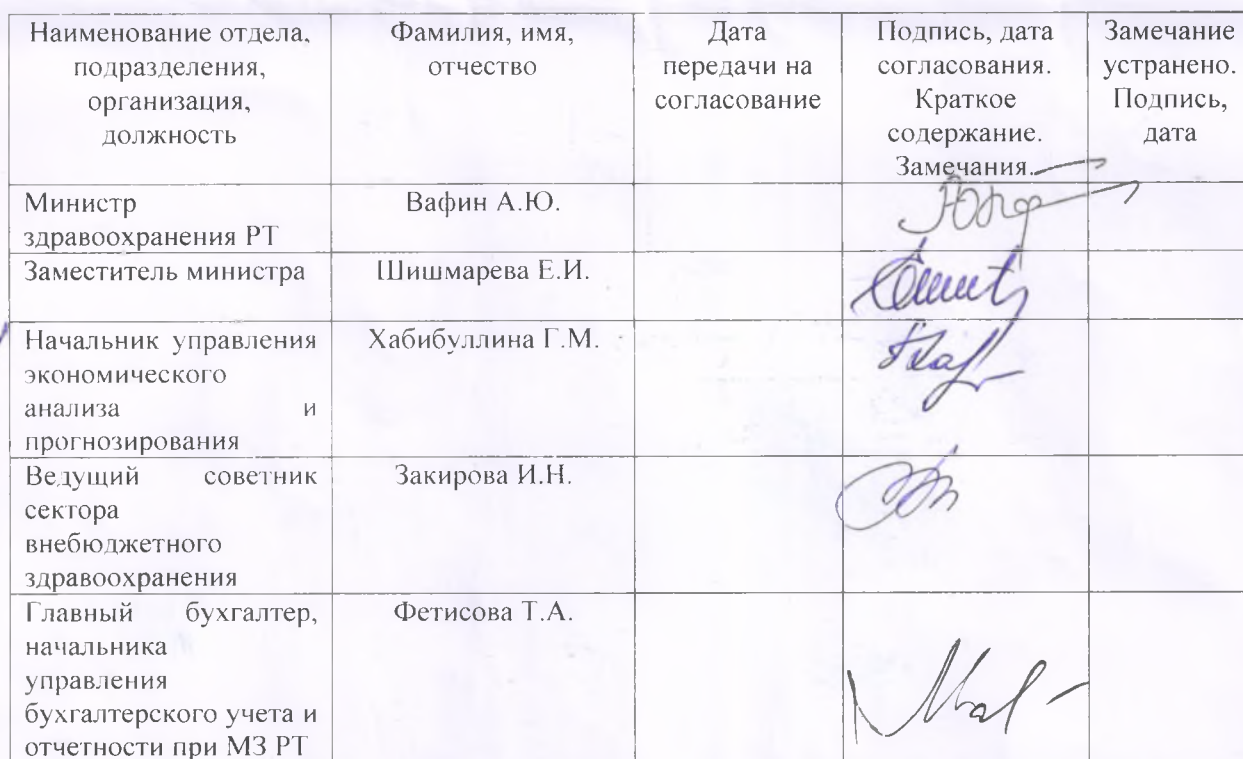 Наименование отдела,
подразделения,
организация,
должность
Фамилия, имя,
отчество
Дата
передачи на
согласование
Подпись, дата
согласования.
Краткое
содержание.
Замечания.
Замечание
устранено.
Подпись,
дата
Министр
здравоохранения РТ
Вафин А.Ю.
Заместитель министра
Шишмарева Е.И.
Начальник управления
экономического
анализа и
прогнозирования
Хабибуллина Г.М.
Ведущий советник
сектора
внебюджетного
здравоохранения
Закирова И.Н.
Главный бухгалтер,
начальника
управления
бухгалтерского учета и
отчетности при МЗ РТ
Фетисова Т.А.